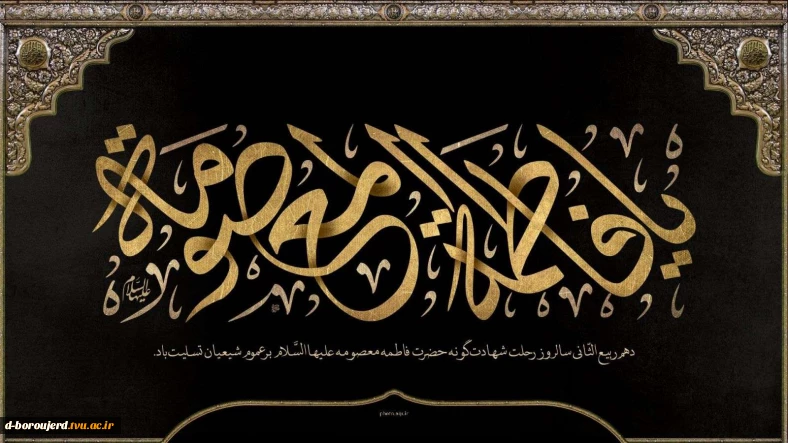 یا فاطمة المعصومة
علیها السلام
دهم ربیع الثّانی سالروز رحلت شهادت‌گونه حضرت فاطمه معصومه علیها السَّلام بر عموم شیعیان تسلیت باد.
d-boroujerd.tvu.ac.ir